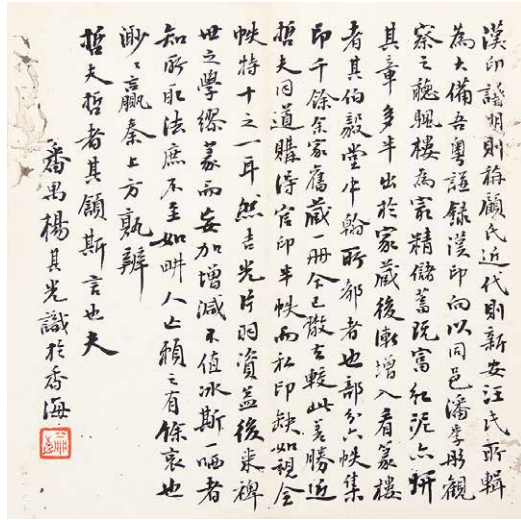 漢印譜明則稱顧氏近代則新安汪氏所輯
為大備吾粵譜録漢印向以同邑潘季彤觀
察之聽颿樓為最精儲蓄既富紅泥亦妍
其章多半出於家藏後漸增入看篆樓
者其伯毅堂中翰所部者也部分六帙集
印千餘余家舊藏一冊今已散去較此差勝近
哲夫同道購得官印半帙而私印缺如視全
帙特十之一耳然吉光片羽資益後來裨
世之學繆篆而妄加增減不值冰斯一哂者
知所取法庶不至如畊人亡賴之有餘哀也
渺渺嬴秦上方孰辨
哲夫哲者其頷斯言也夫
番禺楊其光識於香海